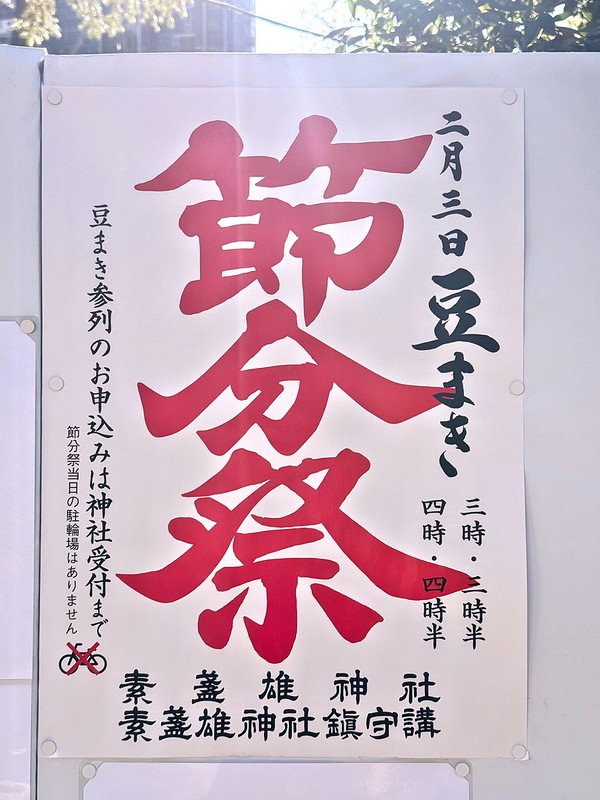 二月三日 豆まき
三時・三時半
四時・四時半
節分祭
豆まき参列のお申込みは神社受付まで
節分祭当日の駐輪場はありません
素盞雄神社
素盞雄神社鎮守講